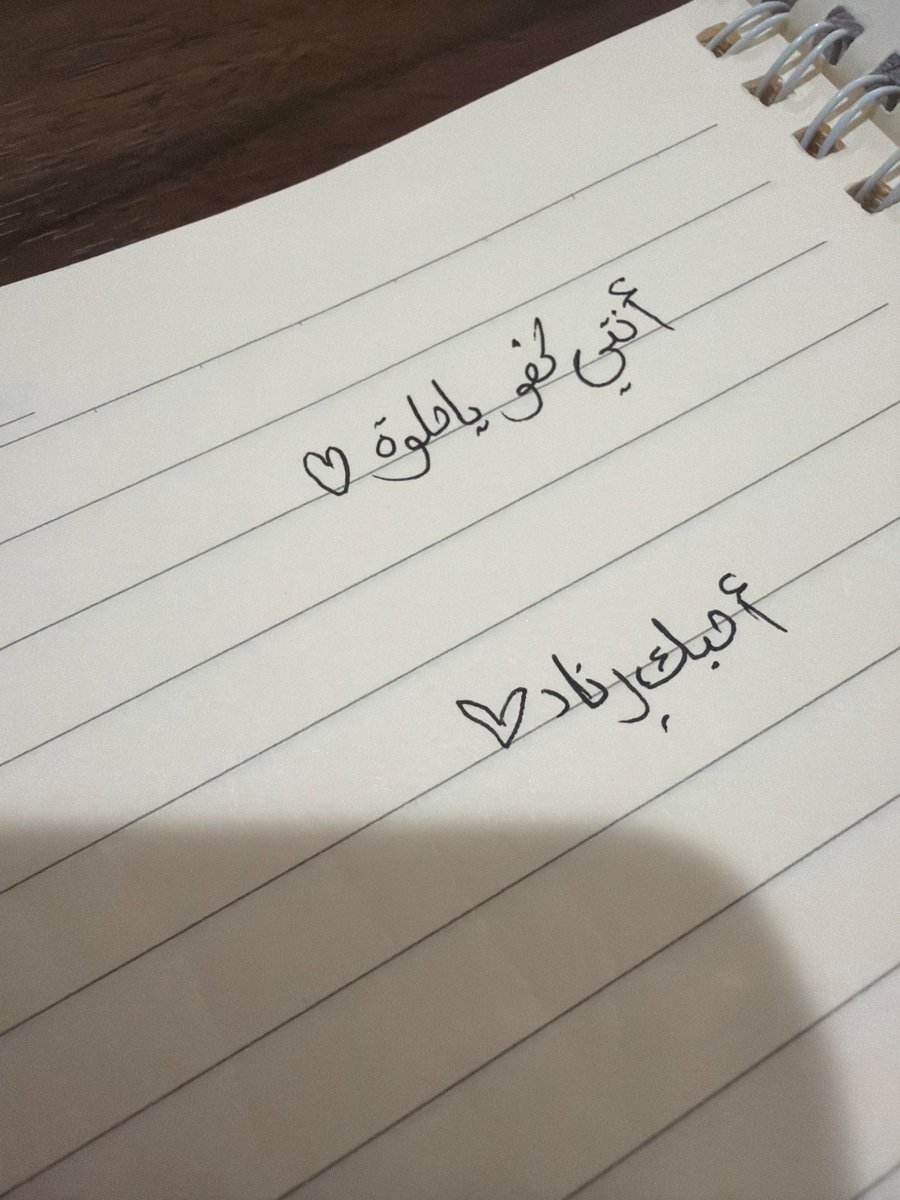 أنتي كفو ياحلوة ♡
أحبكِ رناد ♡